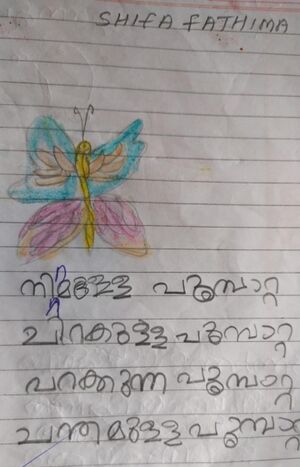 SHIFA FATHIMA
നിറമുള്ള പൂമ്പാറ്റ
ചിറകുള്ള പൂമ്പാറ്റ
പറക്കുന്ന പൂമ്പാറ്റ
ചന്തമുള്ള പൂമ്പാറ്റ